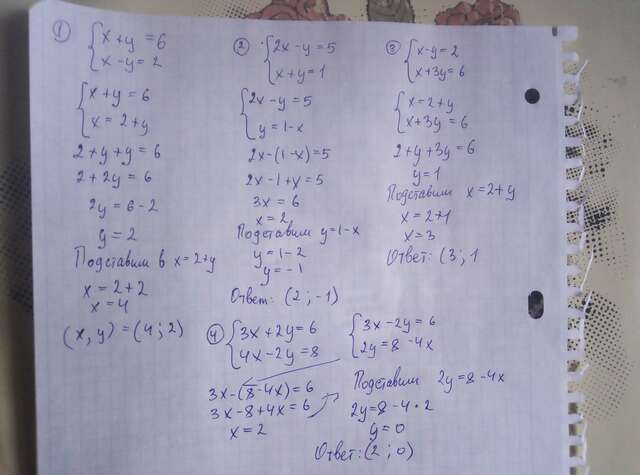 ①
x+y=6
x-y=2
x+y=6
x=2+y
2+y+y=6
2+2y=6
2y=6-2
y=2
Подставим в x=2+y
x=2+2
x=4
(x,y)=(4;2)
②
2x-y=5
x+y=1
2x-y=5
y=1-x
2x-(1-x)=5
2x-1+x=5
3x=6
x=2
Подставим y=1-x
y=1-2
y=-1
Ответ: (2;-1)
③
x-y=2
x+3y=6
x=2+y
x+3y=6
2+y+3y=6
y=1
Подставим x=2+y
x=2+1
x=3
Ответ: (3;1
④
3x+2y=6
4x-2y=8
3x-2y=6
2y=8-4x
3x-(8-4x)=6
3x-8+4x=6
x=2
Подставим 2y=8-4x
2y=8-4·2
y=0
Ответ: (2;0)